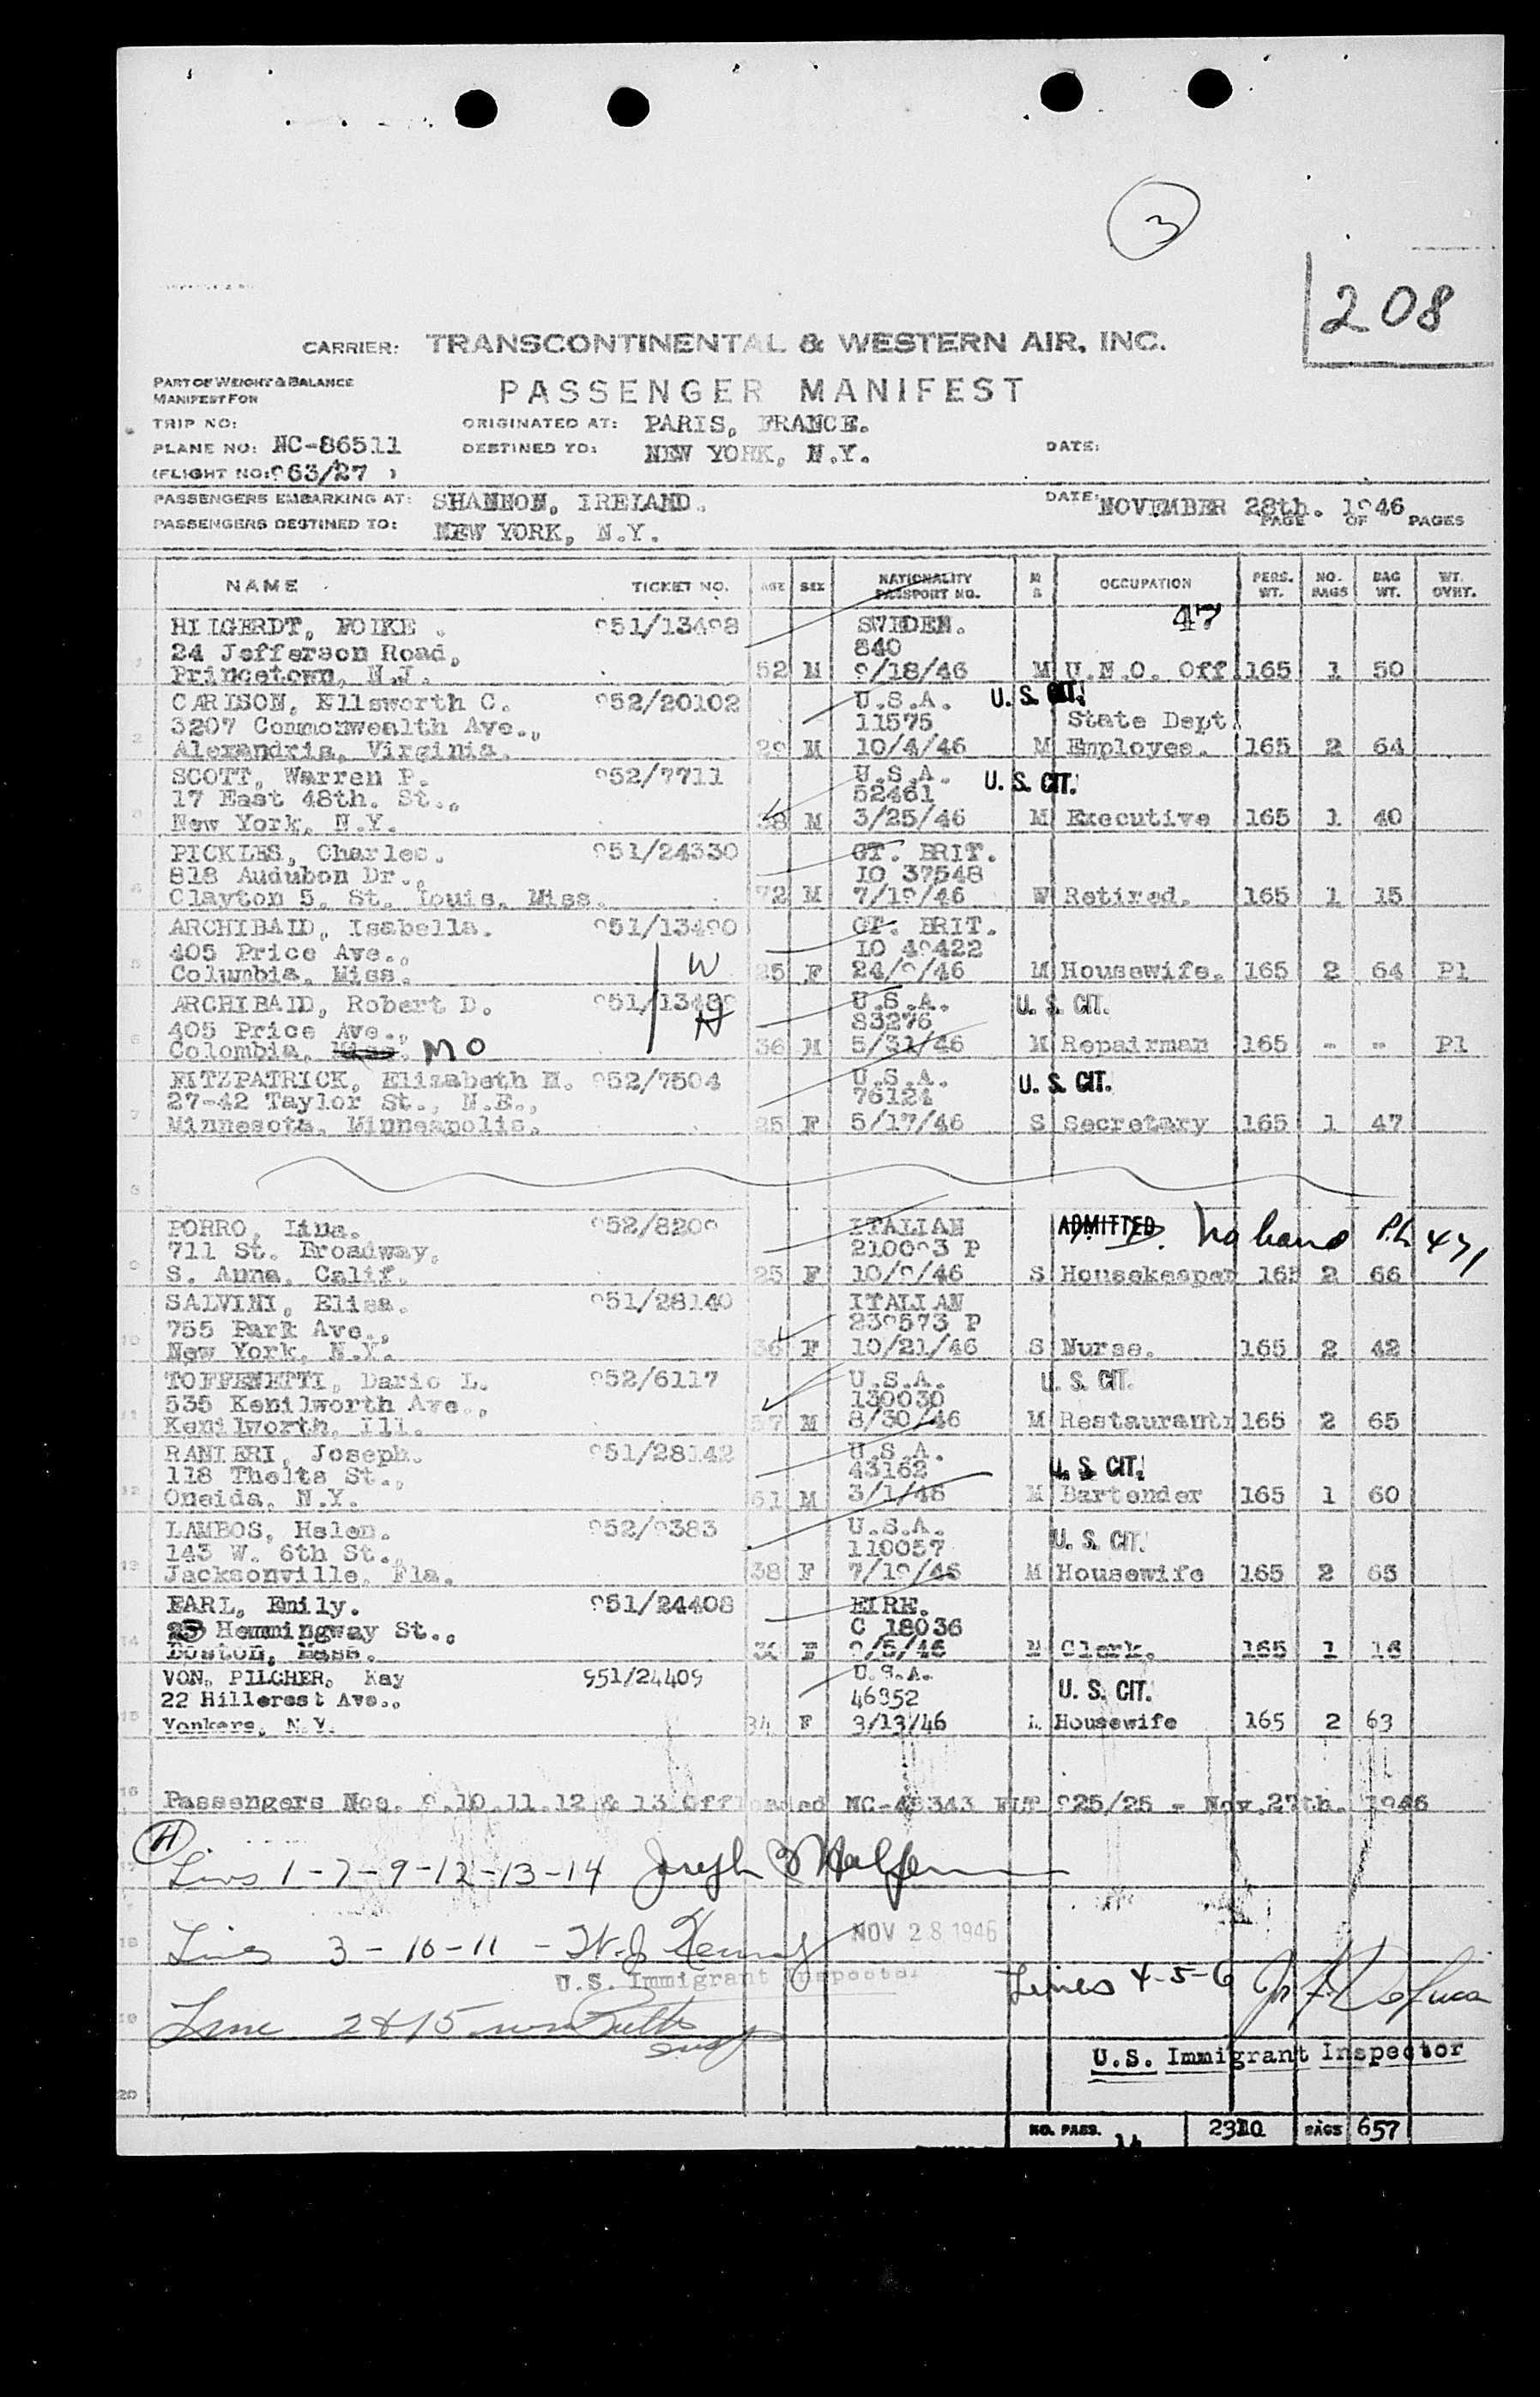 3
208
CARRIER: TRANSCONTINENTAL & WESTERN AIR, INC.
PART OF WEIGHT & BALANCE
MANIFEST FOR
PASSENGER MANIFEST
TRIP NO:
ORIGINATED AT: PARIS, FRANCE.
PLANE NO: NC-86511
DESTINED TO: NEW YORK, N.Y.
DATE:
(FLIGHT NO: 963/27 )
PASSENGERS EMBARKING AT: SHANNON, IRELAND.
DATE: NOVEMBER 28th. 1946
PASSENGERS DESTINED TO: NEW YORK, N.Y.
PAGE OF PAGES
NAME TICKET NO. AGE SEX NATIONALITY PASSPORT NO. M S OCCUPATION PERS. WT. NO. BAGS BAG WT. WT. OVHT.
47
HILGERDT, FOLKE . 951/13498 SWEDEN.
24 Jefferson Road, 840
1 Princetown, N.J. 52 M 9/18/46 M U.N.O. Off 165 1 50
CARLSON, Ellsworth C. 952/20102 U.S.A. U. S. CIT.
3207 Commonwealth Ave., 11575 State Dept.
2 Alexandria, Virginia. 29 M 10/4/46 M Employee. 165 2 64
SCOTT, Warren P. 952/7711 U.S.A. U. S. CIT.
17 East 48th. St., 52461
3 New York, N.Y. 38 M 3/25/46 M Executive 165 1 40
PICKLES, Charles. 951/24330 GT. BRIT.
818 Audubon Dr., IO 37548
4 Clayton 5, St. Louis, Miss. 72 M 7/19/46 W Retired. 165 1 15
ARCHIBALD, Isabella. 951/13490 GT. BRIT.
405 Price Ave., W IO 49422
5 Columbia, Miss. 25 F 24/9/46 M Housewife. 165 2 64 Pl
ARCHIBALD, Robert D. 951/13489 U.S.A. U. S. CIT.
405 Price Ave., H 83276
6 Colombia, Miss. MO 36 M 5/31/46 M Repairman 165 - - Pl
FITZPATRICK, Elizabeth M. 952/7504 U.S.A. U. S. CIT.
27-42 Taylor St., N.E., 76124
7 Minnesota, Minneapolis. 25 F 5/17/46 S Secretary 165 1 47
8
PORRO, Lina. 952/8209 ITALIAN ADMITTED
711 St. Broadway, 210093 P
9 S. Anna, Calif. 25 F 10/9/46 S Housekeeper 165 2 66
SALVINI, Elisa. 951/28140 ITALIAN
755 Park Ave., 239573 P
10 New York, N.Y. 36 F 10/21/46 S Nurse. 165 2 42
TOFFENETTI, Dario L. 952/6117 U.S.A. U. S. CIT.
535 Kenilworth Ave., 130030
11 Kenilworth, Ill. 57 M 8/30/46 M Restaurantr 165 2 65
RANIERI, Joseph. 951/28142 U.S.A. U. S. CIT.
118 Thelts St., 43162
12 Oneida, N.Y. 61 M 3/1/46 M Bartender 165 1 60
LAMBOS, Helen. 952/9383 U.S.A. U. S. CIT.
143 W. 6th St., 110057
13 Jacksonville, Fla. 38 F 7/19/46 M Housewife 165 2 65
EARL, Emily. 951/24408 EIRE.
Hemmingway St., C 18036
14 Boston, Mass. 30 F 9/5/46 M Clerk. 165 1 16
VON, PILCHER, Kay 951/24409 U.S.A. U. S. CIT.
22 Hillcrest Ave., 46952
15 Yonkers, N.Y. 34 F 3/13/46 Housewife 165 2 63
16 Passengers Nos. 9.10.11.12 & 13 Offloaded NC-45343 FLT 925/25 - Nov.27th. 1946
H
17 Lines 1-7-9-12-13-14 Joseph
18 Lines 3-10-11 - W.J. Kenny NOV 28 1946
U.S. Immigrant Inspector
Lines 4-5-6
19 Line 2 & 15
U.S. Immigrant Inspector
20
NO. PASS. 14 2310 BAGS 657